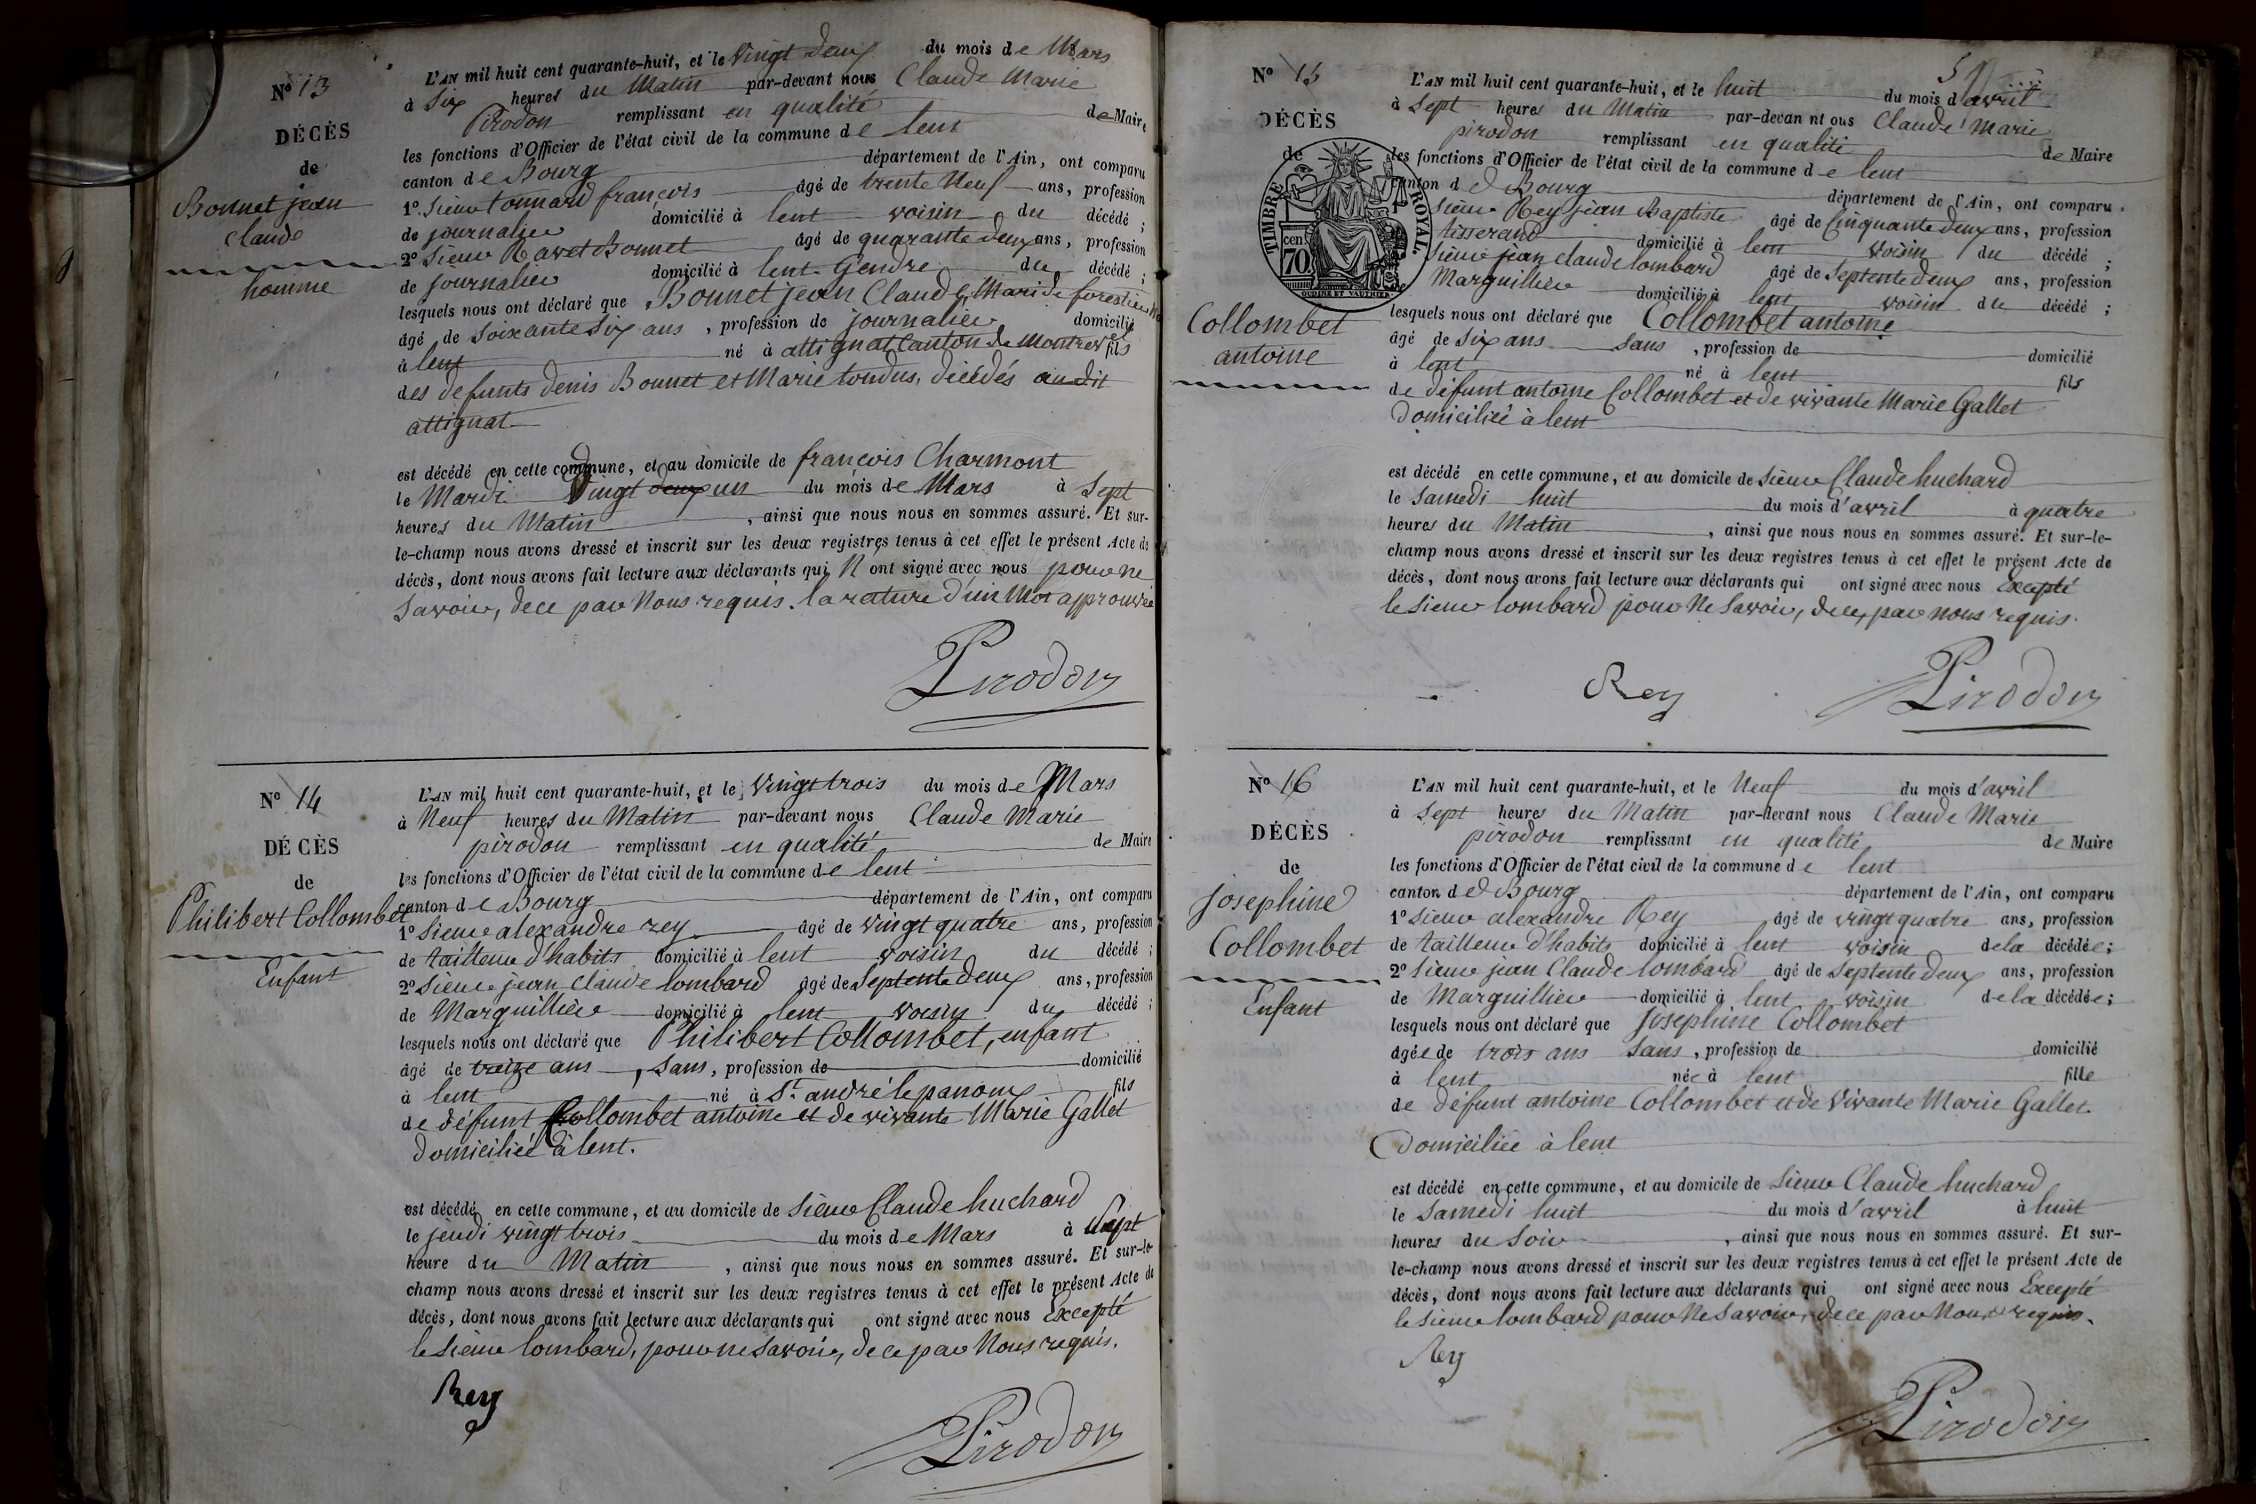 Nº 13
DÉCÈS
de
Bonnet jean
claude
homme
L'AN mil huit cent quarante-huit, et le vingt deux du mois de Mars
à Six heures du Matin par-devant nous Claude Marie
Pirodon remplissant en qualité de Maire
les fonctions d'Officier de l'état civil de la commune de lent
canton de Bourg département de l'Ain, ont comparu
1º Sieur tonnard françois âgé de trente Neuf ans, profession
de journalier domicilié à lent voisin du décédé ;
2º Sieur Ravet Bonnet âgé de quarante deux ans, profession
de journalier domicilié à lent Gendre du décédé ;
lesquels nous ont déclaré que Bonnet jean Claude, Mari de forestier
âgé de Soixante Six ans , profession de journalier domicilié
à lent né à attignat Canton de Montrevel fils
des defunts denis Bonnet et Marie tondus, décédés audit
attignat
est décédé en cette commune, et au domicile de françois Charmont
le Mardi Vingt deux un du mois de Mars à Sept
heures du Matin , ainsi que nous nous en sommes assuré. Et sur-
le-champ nous avons dressé et inscrit sur les deux registres tenus à cet effet le présent Acte de
décès, dont nous avons fait lecture aux déclarants qui N'ont signé avec nous pour ne
Savoir, de ce par Nous requis. la rature d'un Mot approuvée
Pirodon
Nº 14
DÉCÈS
de
Philibert Collombet
Enfant
L'AN mil huit cent quarante-huit, et le Vingt trois du mois de Mars
à Neuf heures du Matin par-devant nous Claude Marie
pirodon remplissant en qualité de Maire
les fonctions d'Officier de l'état civil de la commune de lent
canton de Bourg département de l'Ain, ont comparu
1º Sieur alexandre rey âgé de vingt quatre ans, profession
de tailleur d'habits domicilié à lent voisin du décédé ;
2º Sieur jean Claude lombard âgé de Septente deux ans, profession
de Marguillier domicilié à lent voisin du décédé ;
lesquels nous ont déclaré que Philibert Collombet, enfant
âgé de treize ans , sans , profession de domicilié
à lent né à St. andré le panoux fils
de défunt Collombet antoine et de vivante Marie Gallet
domiciliée à lent.
est décédé en cette commune, et au domicile de Sieur Claude huchard
le jeudi vingt trois du mois de Mars à Sept
heure du Matin , ainsi que nous nous en sommes assuré. Et sur-le-
champ nous avons dressé et inscrit sur les deux registres tenus à cet effet le présent Acte de
décès, dont nous avons fait lecture aux déclarants qui ont signé avec nous Excepté
le Sieur lombard, pour ne savoir, de ce par Nous requis.
Rey
Pirodon
Nº 15
DÉCÈS
de
Collombet
antoine
TIMBRE ROYAL.
70 cen
OUDINÉ ET VAUTHIER
L'AN mil huit cent quarante-huit, et le huit du mois d'avril
à Sept heures du Matin par-devan nt ous Claude Marie
pirodon remplissant en qualité de Maire
les fonctions d'Officier de l'état civil de la commune de lent
canton de Bourg département de l'Ain, ont comparu
Sieur Rey jean Baptiste âgé de Cinquante deux ans, profession
tisserand domicilié à lent voisin du décédé ;
Sieur jean claude lombard âgé de Septente deux ans, profession
Marguillier domicilié à lent voisin du décédé ;
lesquels nous ont déclaré que Collombet antoine
âgé de Six ans Sans , profession de domicilié
à lent né à lent fils
de défunt antoine Collombet et de vivante Marie Gallet
Domiciliée à lent
est décédé en cette commune, et au domicile de Sieur Claude huchard
le Samedi huit du mois d'avril à quatre
heures du Matin , ainsi que nous nous en sommes assuré. Et sur-le-
champ nous avons dressé et inscrit sur les deux registres tenus à cet effet le présent Acte de
décès, dont nous avons fait lecture aux déclarants qui ont signé avec nous Excepté
le Sieur lombard pour Ne Savoir, de ce, par nous requis.
Rey
Pirodon
Nº 16
DÉCÈS
de
josephine
Collombet
Enfant
L'AN mil huit cent quarante-huit, et le Neuf du mois d'avril
à Sept heures du Matin par-devant nous Claude Marie
pirodon remplissant en qualité de Maire
les fonctions d'Officier de l'état civil de la commune de lent
canton de Bourg département de l'Ain, ont comparu
1º Sieur alexandre Rey âgé de vingt quatre ans, profession
de tailleur d'habits domicilié à lent voisin de la décédée ;
2º Sieur jean Claude lombard âgé de Septente deux ans, profession
de Marguillier domicilié à lent voisin de la décédée ;
lesquels nous ont déclaré que Josephine Collombet
âgée de trois ans Sans , profession de domicilié
à lent née à lent fille
de défunt antoine Collombet et de Vivante Marie Gallet.
Domiciliée à lent
est décédé en cette commune, et au domicile de Sieur Claude huchard
le Samedi huit du mois d'avril à huit
heures du Soir , ainsi que nous nous en sommes assuré. Et sur-
le-champ nous avons dressé et inscrit sur les deux registres tenus à cet effet le présent Acte de
décès, dont nous avons fait lecture aux déclarants qui ont signé avec nous Excepté
le Sieur lombard pour Ne Savoir, de ce par Nous requis.
Rey
Pirodon